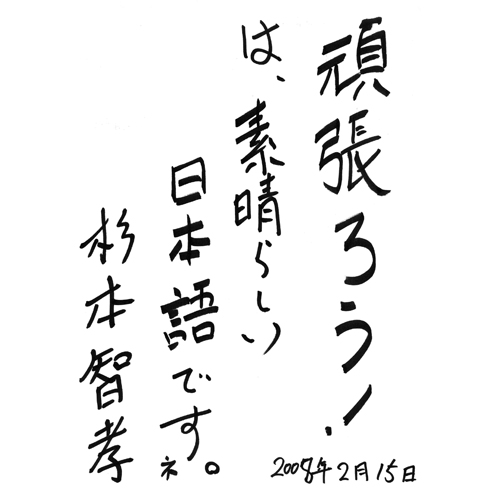 頑張ろう!
は、素晴らしい
日本語です。ネ。
杉本智孝
2008年2月15日